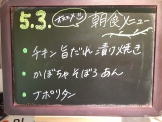 5.3. 朝食メニュー
・チキン旨だれ漬け焼き
・かぼちゃそぼろあん
・ナポリタン